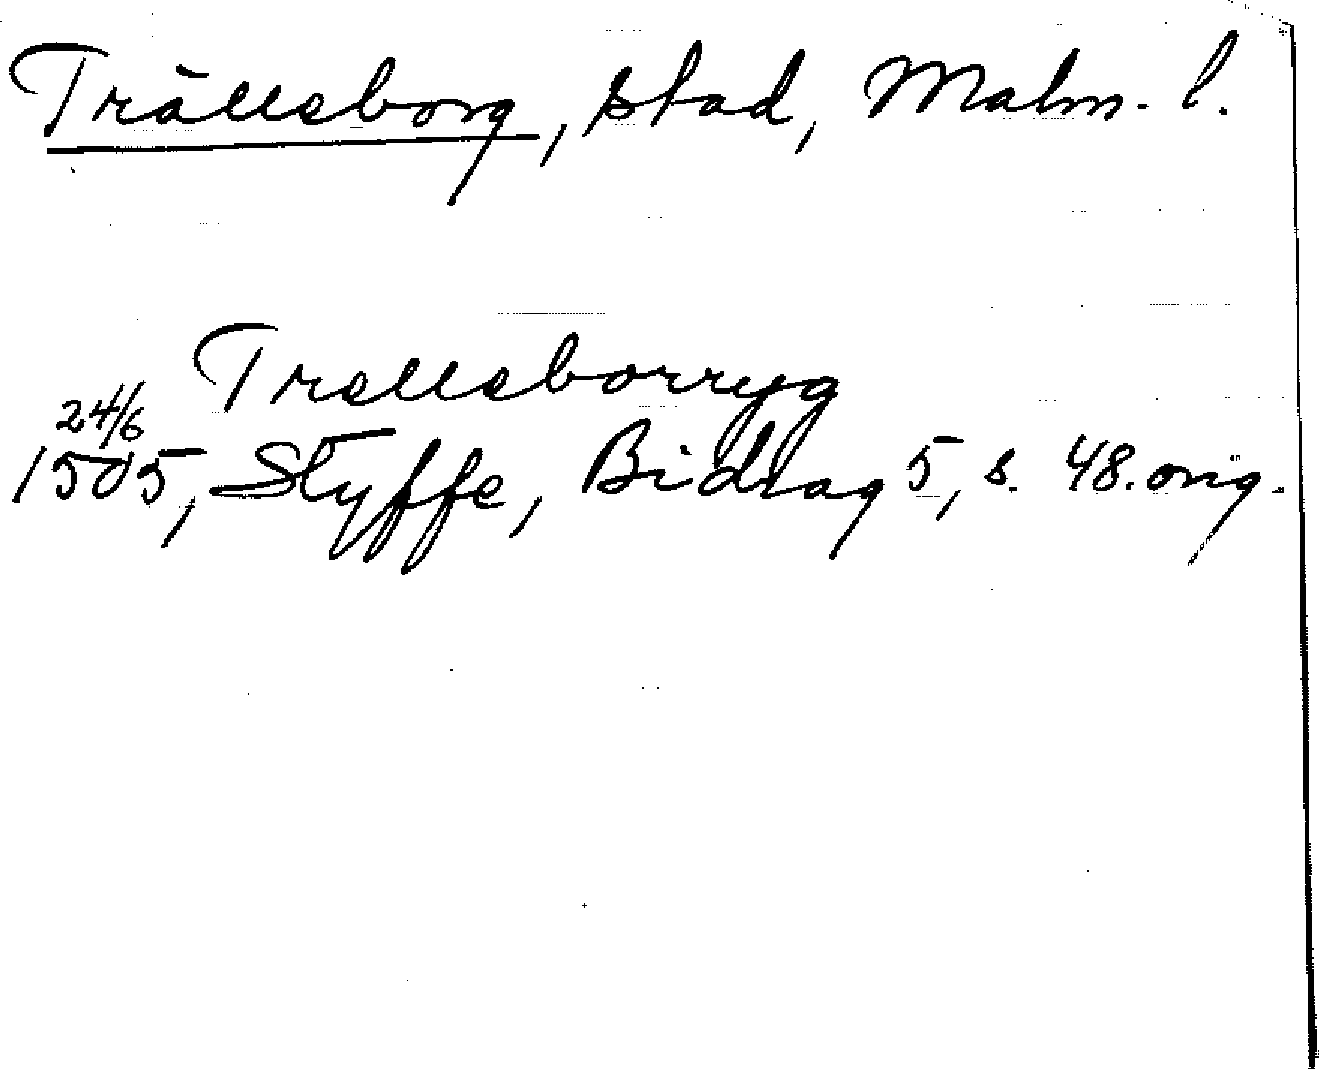 Trälleborg, stad, Malm. l.
Trelleborryg
24/6
1505, Styffe, Bidrag 5, s. 48. orig.